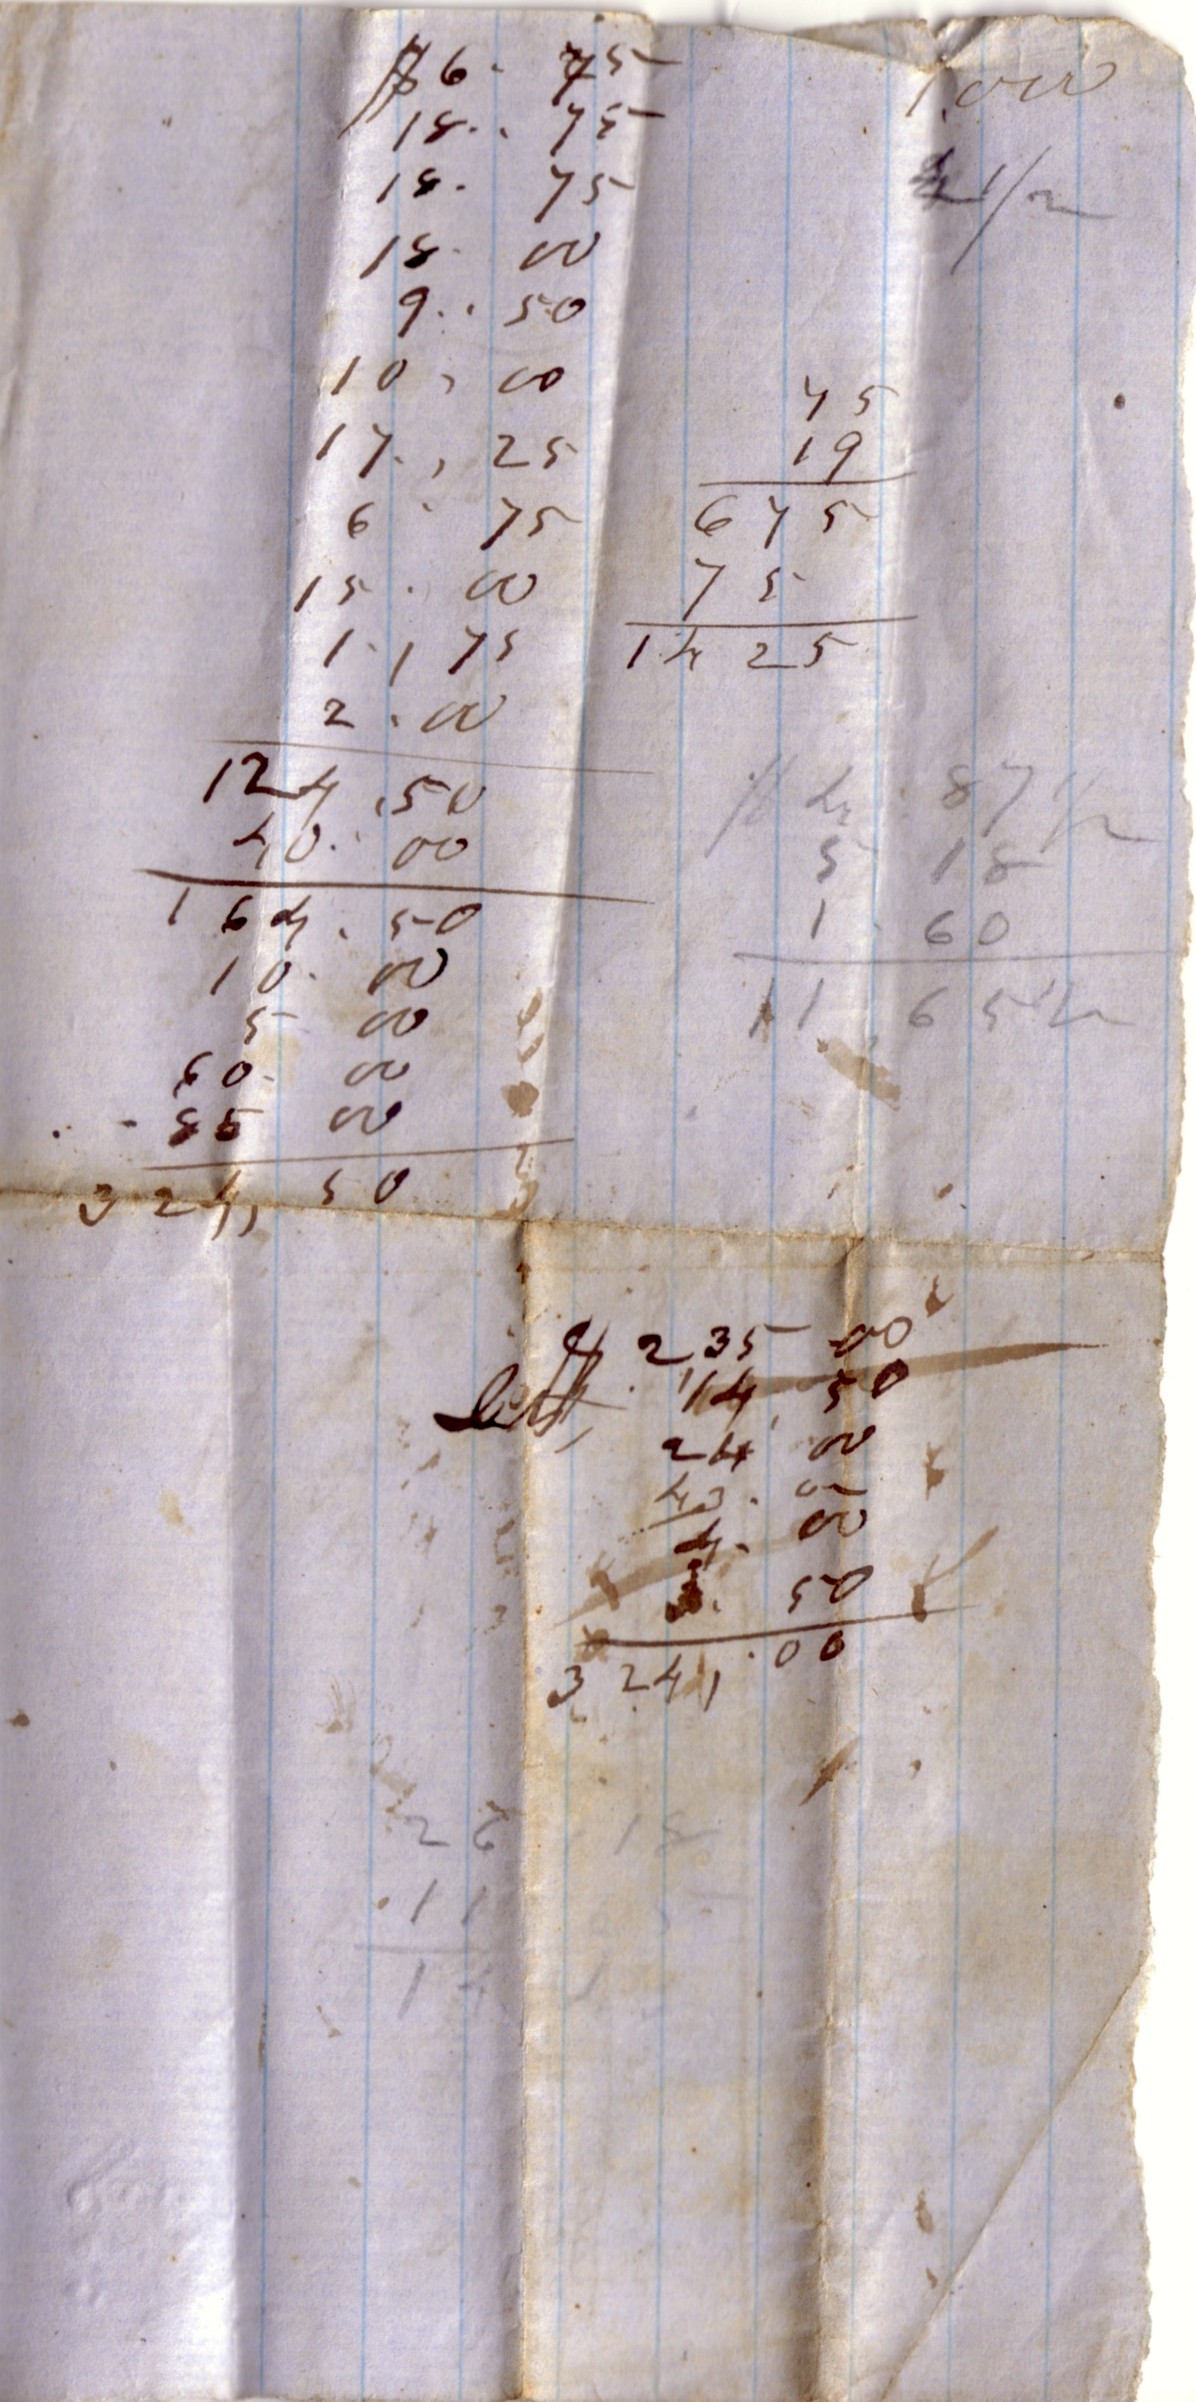 $6. 75
18.. 75
18. 75
18. 00
9.. 50
10, 00
17., 25
6. 75
15. 00
1., 75
2. 00
124.50
40. 00
164. 50
10. 00
5 00
60. 00
85 00
324, 50
1.00
1/2
75
19
675
75
1425
$4. 87 1/2
5 18
1. 60
11.65 1/2
$235 00
14. 50
24 00
43. 00
4. 00
50
324,.00
26 18
11
14